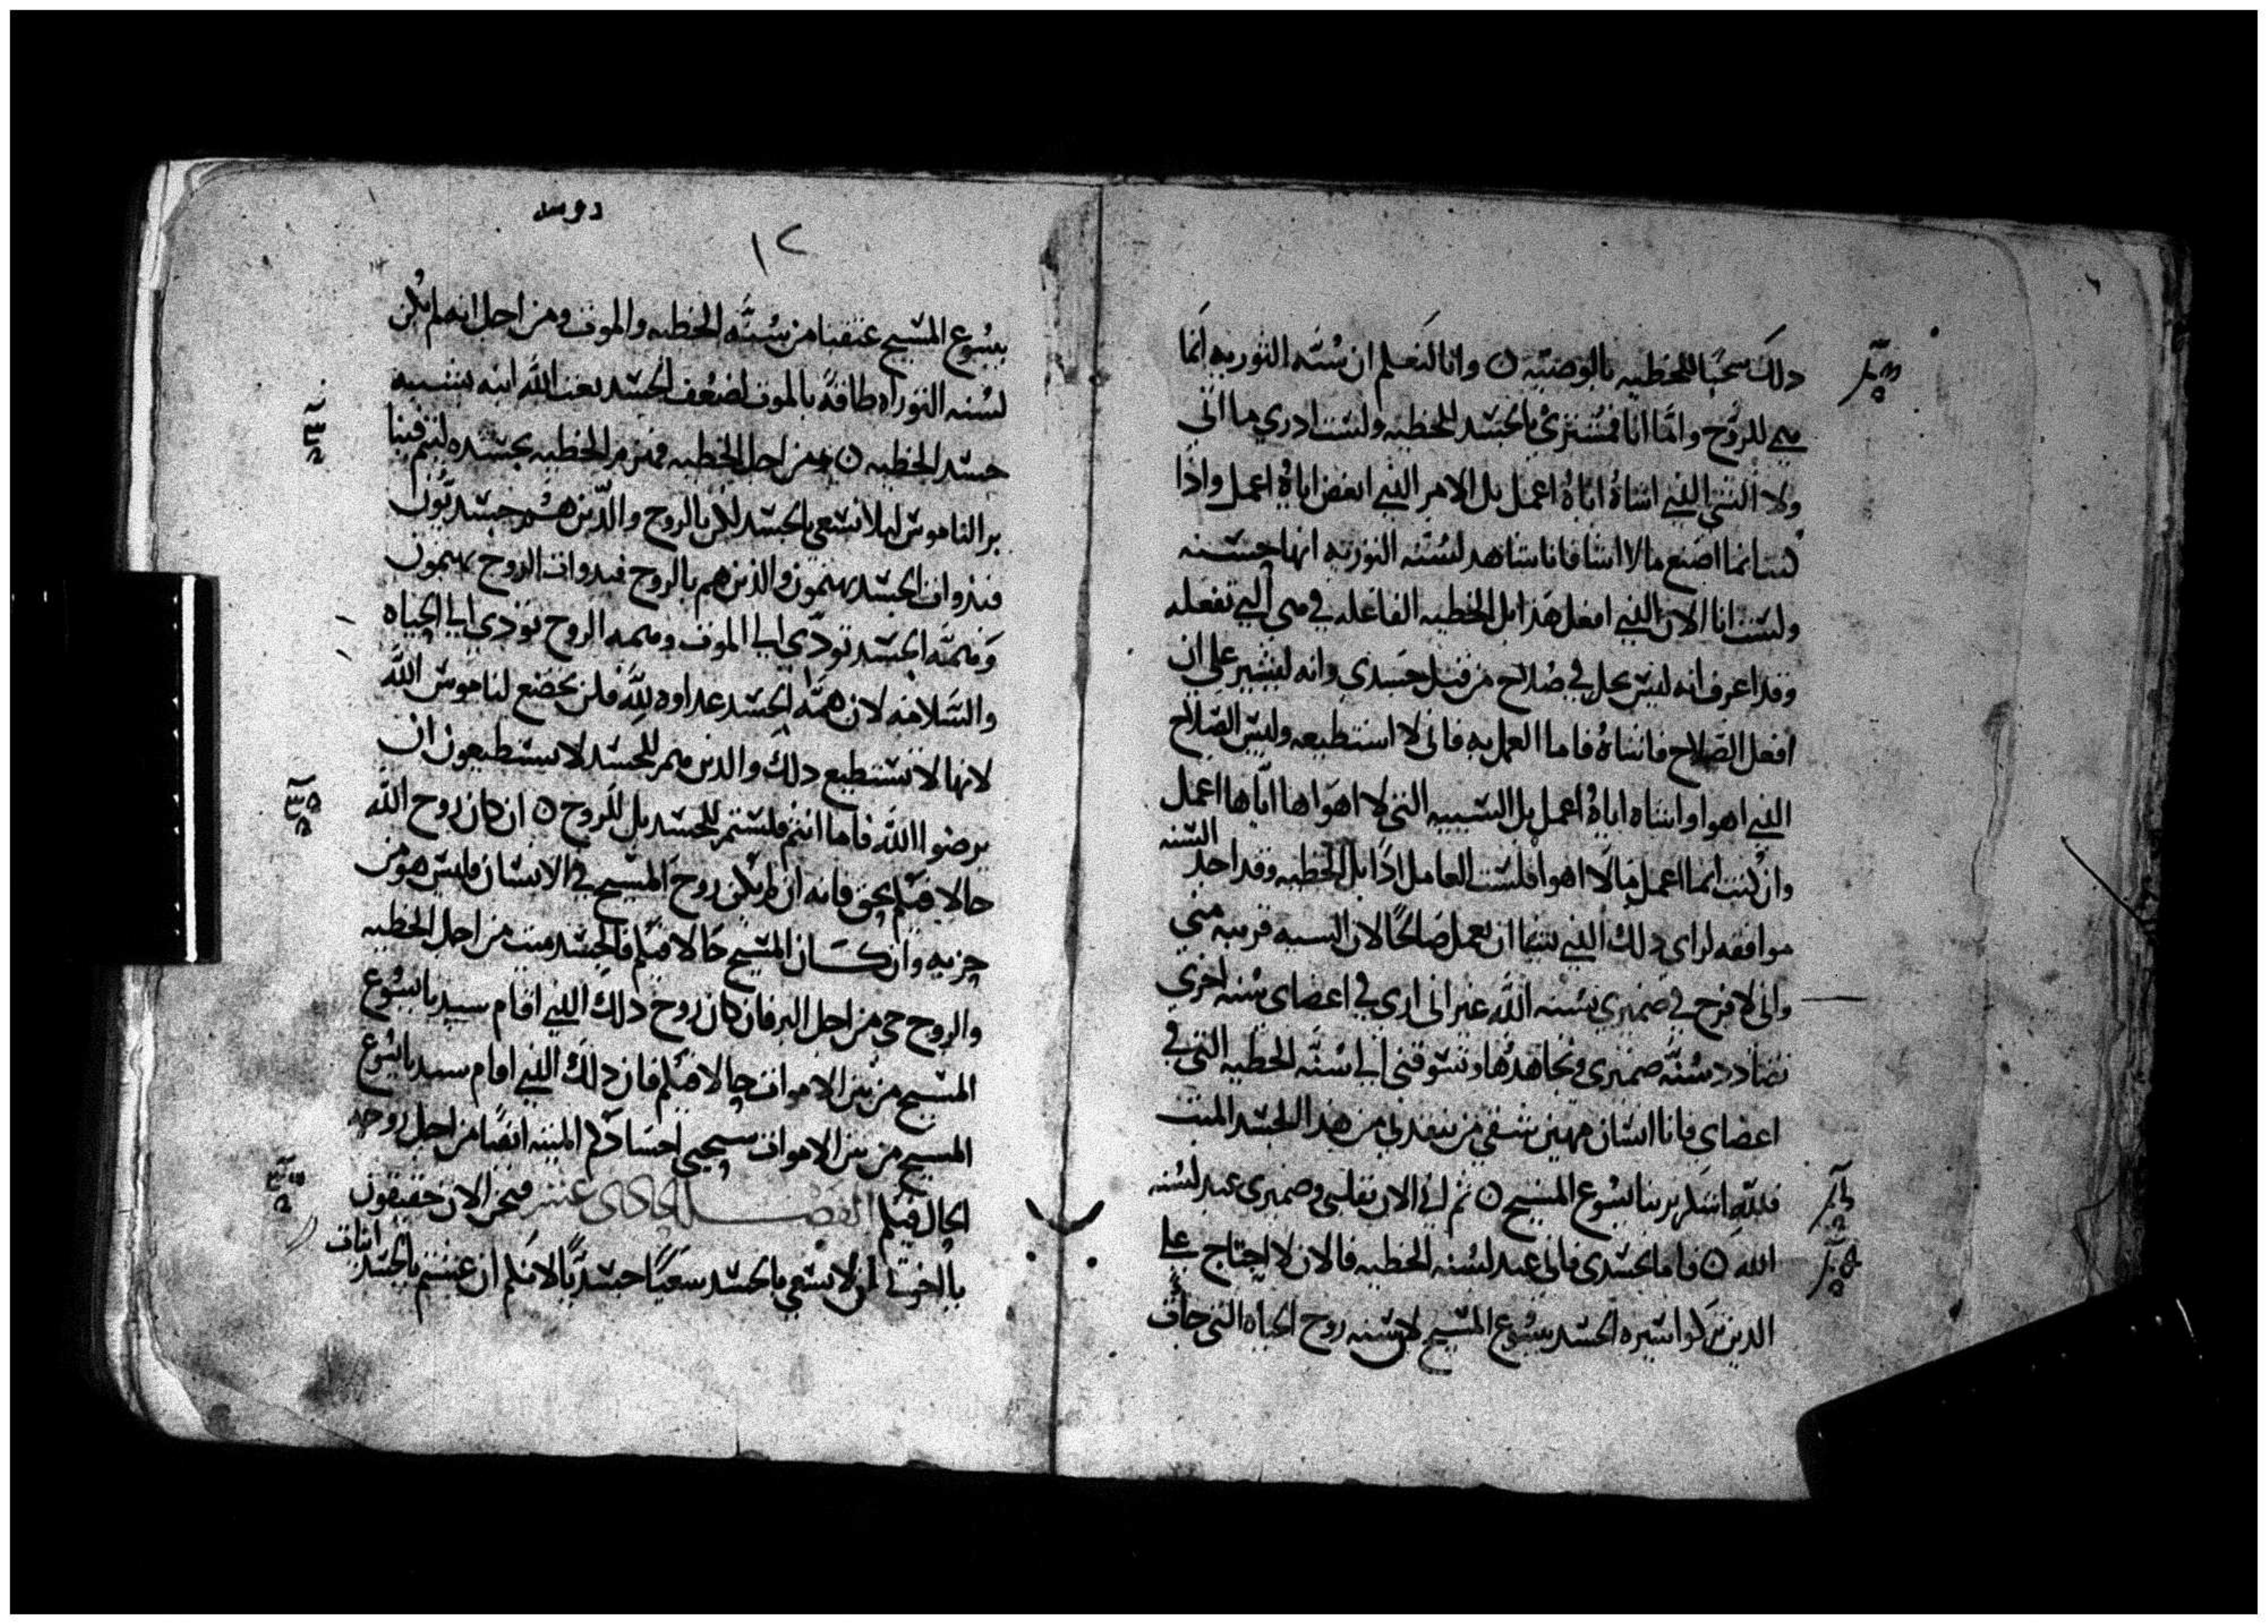 ذلك سحبًا للخطيه بالوصيه ٥ وانا لنعلم ان سُنه التوريه انما
هي للروح واما انا فمشتري بالجسد للخطيه ولست ادري ما اني
ولا الشي الذي اشاهُ اياهُ اعمل بل الامر الذي ابغض اياهُ اعمل واذا
كنت انما اصنع ما لا اشا فانا شاهد لسُنه التوريه انها حسنه
ولست انا الان الذي افعل هذا بل الخطيه الفاعله في هي التي تفعله
وقد اعرف انه ليس يحل في صُلاح من قبل جسدي وانه ليشير علي ان
افعل الصلاح فاشاهُ فاما العمل به فاني لا استطيعه وليس الصلاح
الذي اهوا واشاه اياهُ اعمل بل السييه التي لا اهواها اياها اعمل
وان كنت انما اعمل ما لا اهوا فلست العامل اذًا بل الخطيه وقد اجد السنه
موافقه لراي ذلك الذي يشا ان يعمل صالحًا لان السيه قريبه مني
واني لافرح في ضميري بسنه الله غير اني اري في اعضاي سُنه اخري
تضادد سُنه ضميري وتجاهدها وتسوقني الي سُنه الخطيه التي في
اعضاي فانا انسان مهين شقي من ينقذني من هذا الجسد الميت
فلله اشكر بربنا يسُوع المسيح ٥ ثم اني الان بقلبي وضميري عبد لسُنه
الله ٥ فاما بجسدي فاني عبد لسُنه الخطيه فالان لا احتاج علي
الذين تركوا سيره الجسد بيسُوع المسيح لان سُنه روح الحياه التي جات
١٢
بيسُوع المسيح عتقتنا من سُنَّه الخطيه والموت ومن اجل انه لم يكن
لسُنه التوراه طاقهً بالموت لضعف الجسد بعث الله ابنه بشبيه
جسد الخطيه ٥ ومن اجل الخطيه فهزم الخطيه بجسده لتتم فينا
بر الناموس ليلا نسعي بالجسد لكن بالروح والذين هُم جسديُون
فبذوات الجسد يهتمون والذين هم بالروح فبذوات الروح يهتمون
وهمه الجسد تودي الي الموت وهمه الروح تودي الي الحياه
والسلامه لان همَّه الجسد عداوه لله فلن يخضع لناموس الله
لانها لا تستطيع ذلك والذين هم للجسد لا يستطيعون ان
يرضوا الله فاما انتم فلستم للجسد بل للروح ٥ ان كان روح الله
حالا فيكم بحق فانه ان لم يكن روح المسيح في الانسان فليس هو من
حزبه وان كان المسيح حالا فيكم فالجسد ميت من اجل الخطيه
والروح حي من اجل البر فان كان روح ذلك الذي اقام سيدنا يسُوع
المسيح من بين الاموات حالا فيكم فان ذلك الذي اقام سيدنا يسُوع
المسيح من بين الاموات سيحيي اجسادكم الميته ايضًا من اجل روحه
الحال فيكم الفصل الحادي عشر فنحن الان حقيقون
يا اخوتي ان لا نسعي بالجسد سعيًا جسديًا لانكم ان عشتم بالجسد